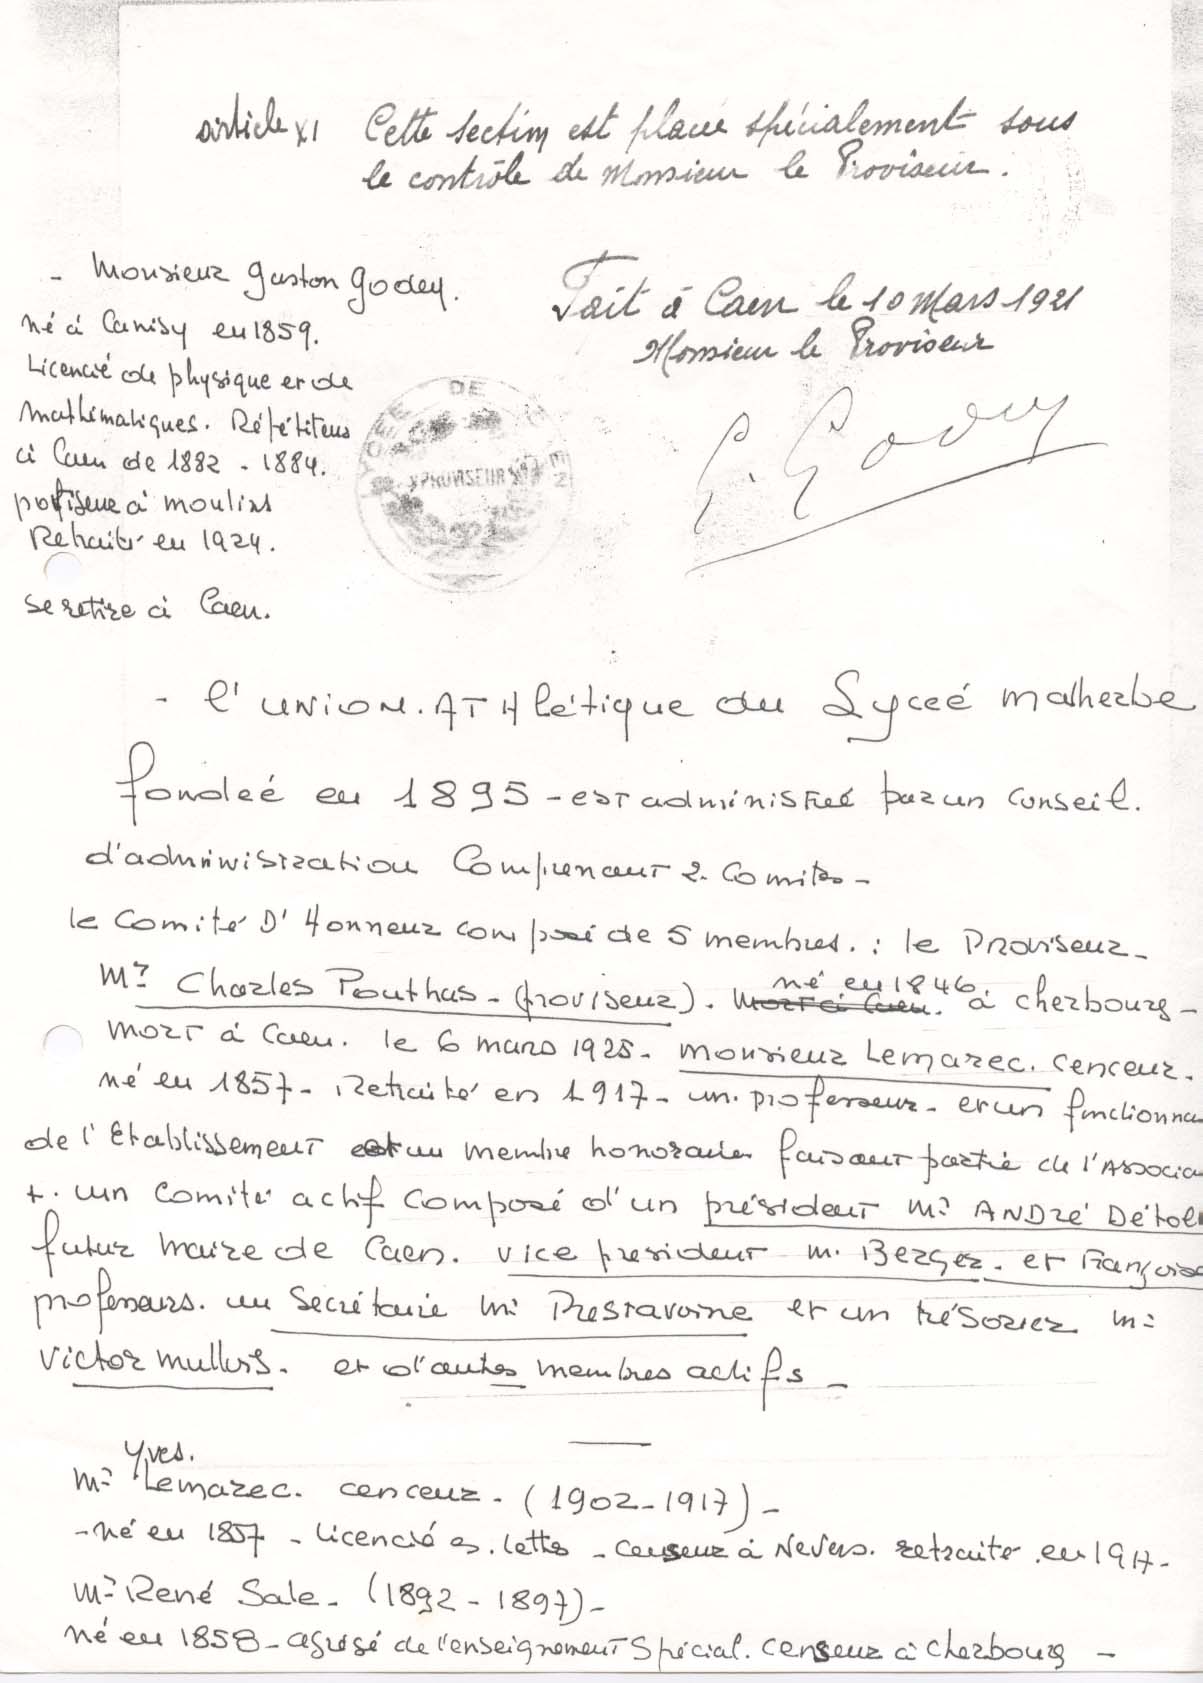 article XI Cette section est placée spécialement sous
le contrôle de Monsieur le Proviseur.
Fait à Caen le 10 Mars 1921
Monsieur le Proviseur
G. Godey
LYCÉE DE
PROVISEUR
- Monsieur Gaston Godey.
né à Canisy en 1859.
Licencié de physique et de
mathématiques. Répétiteur
à Caen de 1882 - 1884.
à moulins
Retraité en 1924.
se retire à Caen.
- l'UNION.ATHlétique du Lyceé malherbe
fondeé en 1895 - est administrée par un conseil.
d'administration Comprenant 2 Comités -
le Comité D'Honneur composé de 5 membres. : le Proviseur -
Mr Charles Pouthas - (proviseur). né en 1846. mort à Caen. à cherbourg -
mort à Caen. le 6 mars 1925 - monsieur Lemarec. cenceur.
né en 1857 - Retraité en 1917 - un. professeur - et un fonctionna
de l'Etablissement et un membre honoraire faisant partie de l'Associa
+. un Comité actif composé d'un président Mr ANDRÉ Détol
futur maire de Caen. vice president m. Berger. et Françoise
professeurs. un Secrétaire mr Prestavoine et un trésorier mr
Victor mullois. et d'autres membres actifs -
Yves.
Mr Lemarec. cenceur - (1902-1917) -
- né en 1857 - Licencié es. lettres - censeur à Nevers. retraité en 1917 -
Mr René Sale - (1892 - 1897) -
né en 1858 - agrégé de l'enseignement Spécial. censeur à cherbourg -